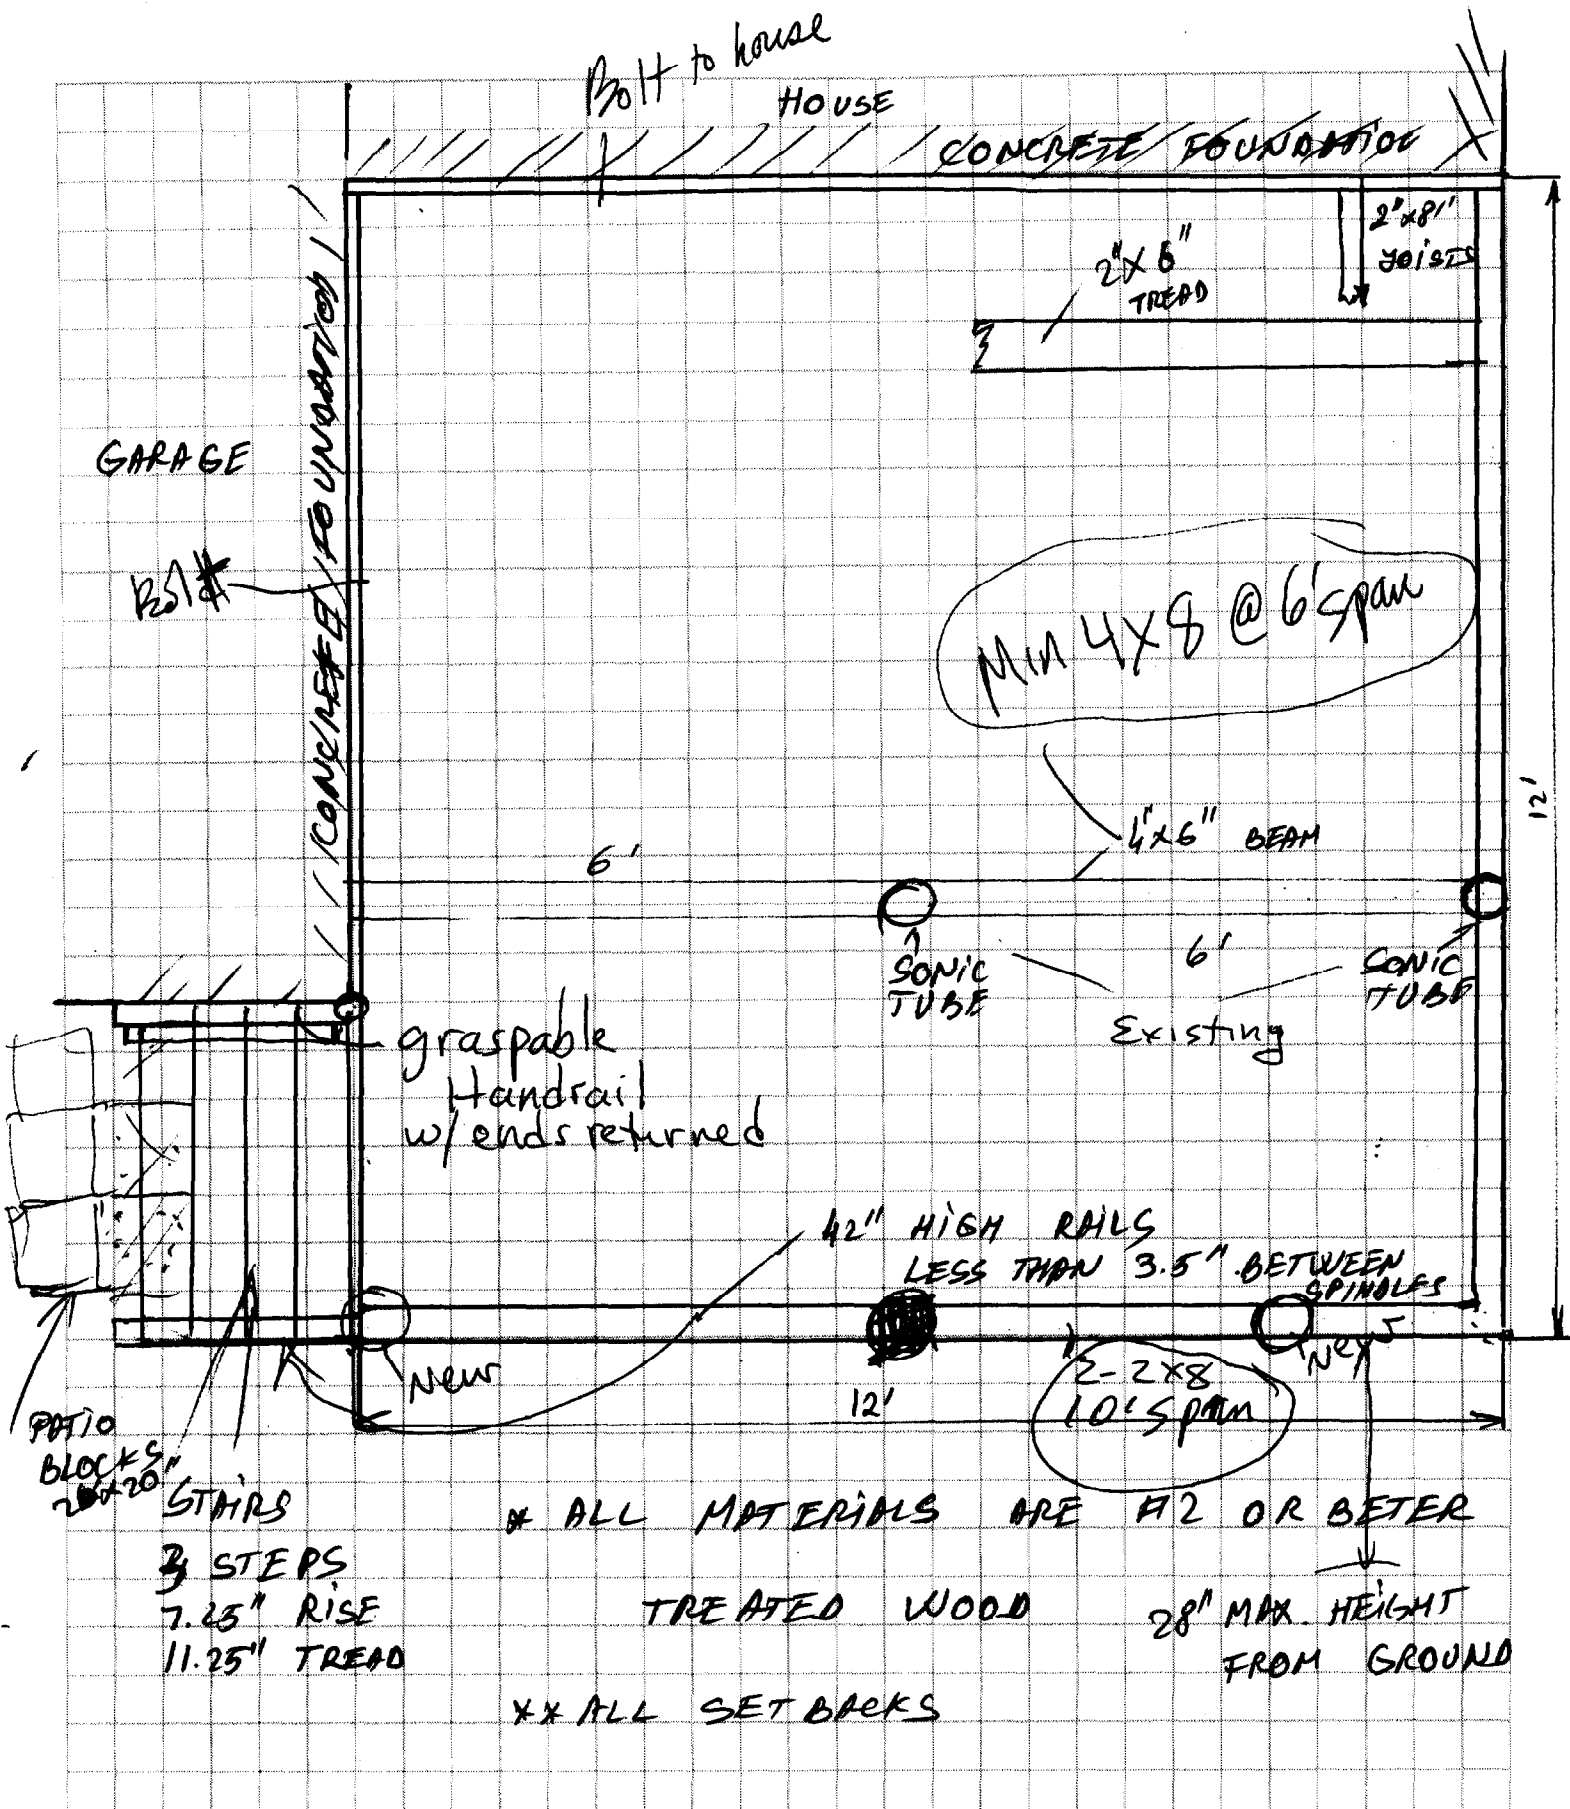 Bolt to house
HOUSE
CONCRETE FOUNDATION
2"x8"
JOISTS
2"x6"
TREAD
CONCRETE FOUNDATION
GARAGE
Bolt
Min 4x8 @ 6' span
12'
4"x6" BEAM
6'
6'
SONIC
TUBE
SONIC
TUBE
Existing
graspable
Handrail
w/ ends returned
42" HIGH RAILS
LESS THAN 3.5" BETWEEN
SPINDLES
New
New
2-2x8
10' Span
12'
PATIO
BLOCKS
STAIRS
3 STEPS
7.25" RISE
11.25" TREAD
* ALL MATERIALS ARE #2 OR BETER
TREATED WOOD
28" MAX. HEIGHT
FROM GROUND
** ALL SETBACKS